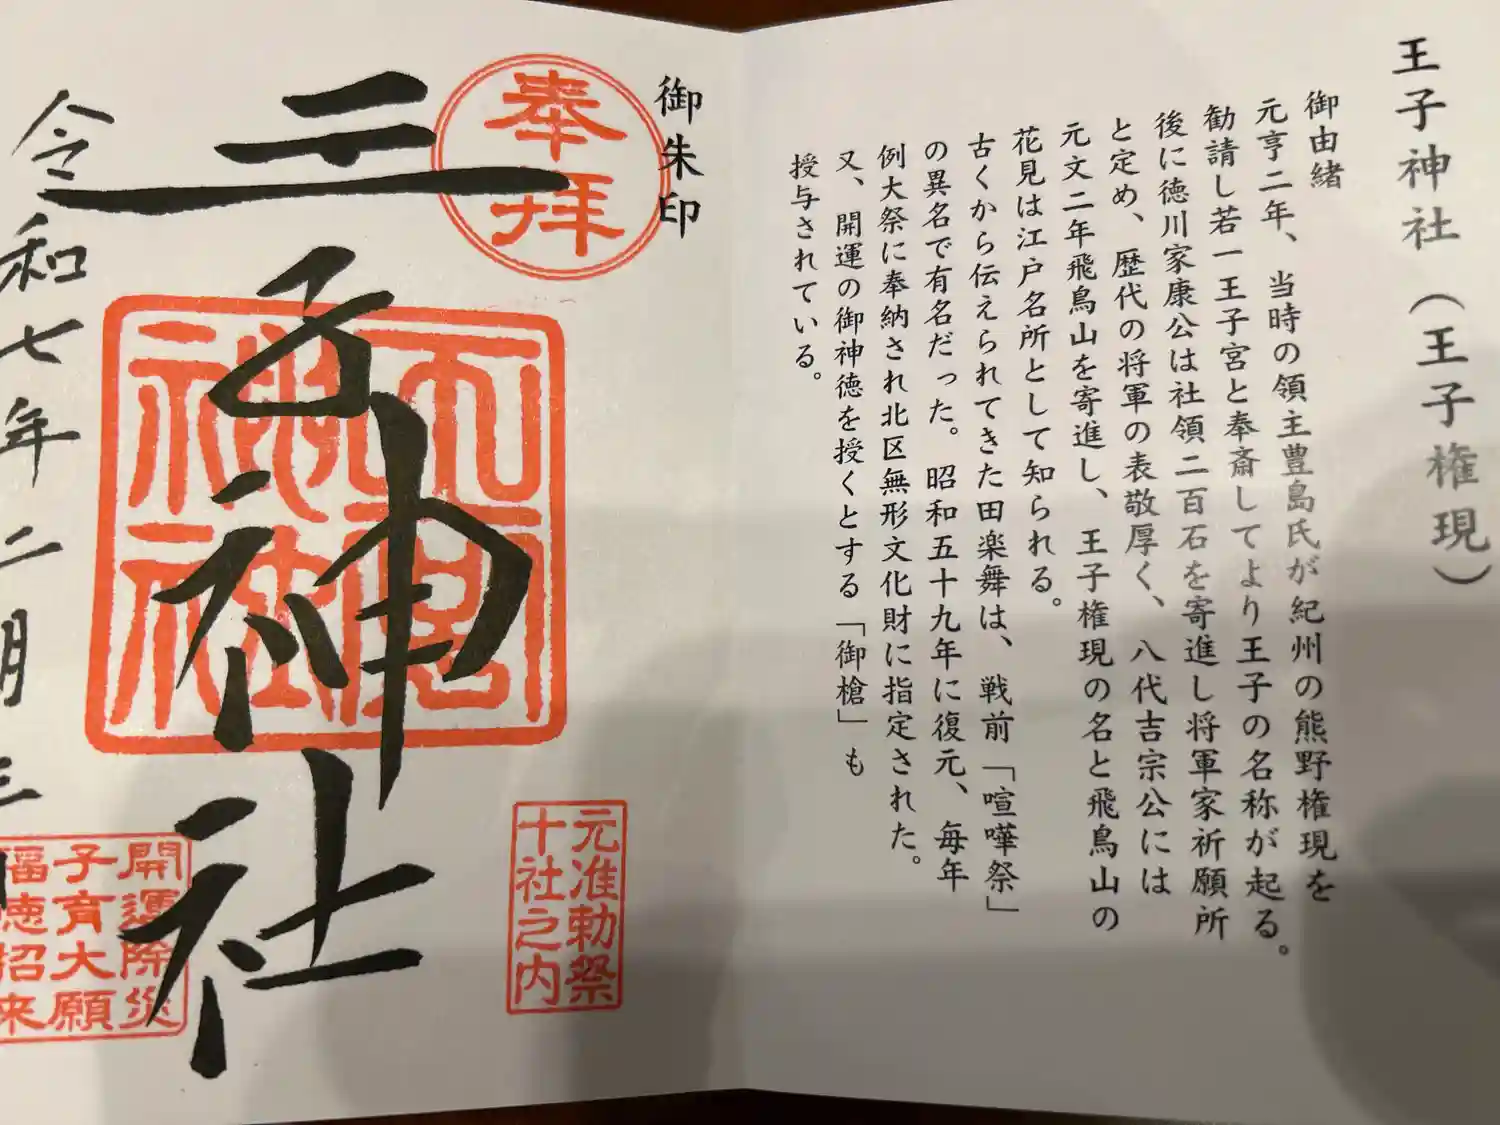 王子神社（王子権現）
御由緒
元亨二年、当時の領主豊島氏が紀州の熊野権現を
勧請し若一王子宮と奉斎してより王子の名称が起る。
後に徳川家康公は社領二百石を寄進し将軍家祈願所
と定め、歴代の将軍の表敬厚く、八代吉宗公には
元文二年飛鳥山を寄進し、王子権現の名と飛鳥山の
花見は江戸名所として知られる。
古くから伝えられてきた田楽舞は、戦前「喧嘩祭」
の異名で有名だった。昭和五十九年に復元、毎年
例大祭に奉納され北区無形文化財に指定された。
又、開運の御神徳を授くとする「御槍」も
授与されている。
御朱印
奉拝
元准勅祭
十社之内
王子神社
開運除災
子育大願
福徳招来
令和七年二月三